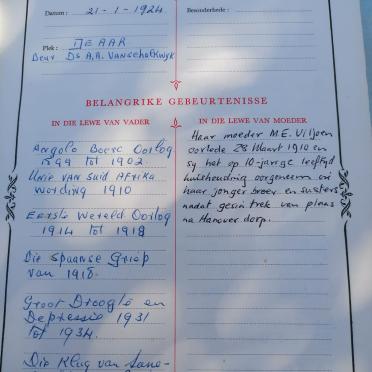 Datum: 21-1-1924
Besonderhede:
Plek: DE AAR
Deur Ds A.A. Vanschalkwyk
BELANGRIKE GEBEURTENISSE
IN DIE LEWE VAN VADER
Angolo Boere Oorlog
1899 tot 1902.
Unie van Suid Afrika
wording 1910
Eerste Wereld Oorlog
1914 tot 1918
Die Spaanse Griep
van 1918.
Groot Droogte en
Depressie 1931
tot 1934.
Die Klug van Sane-
IN DIE LEWE VAN MOEDER
Haar moeder M.E. Viljoen
oorlede 28 Maart 1910 en
sy het op 10-jarige leeftyd
huishouding oorgeneem vir
haar jonger broer en susters
nadat gesin trek van plaas
na Hanover dorp.